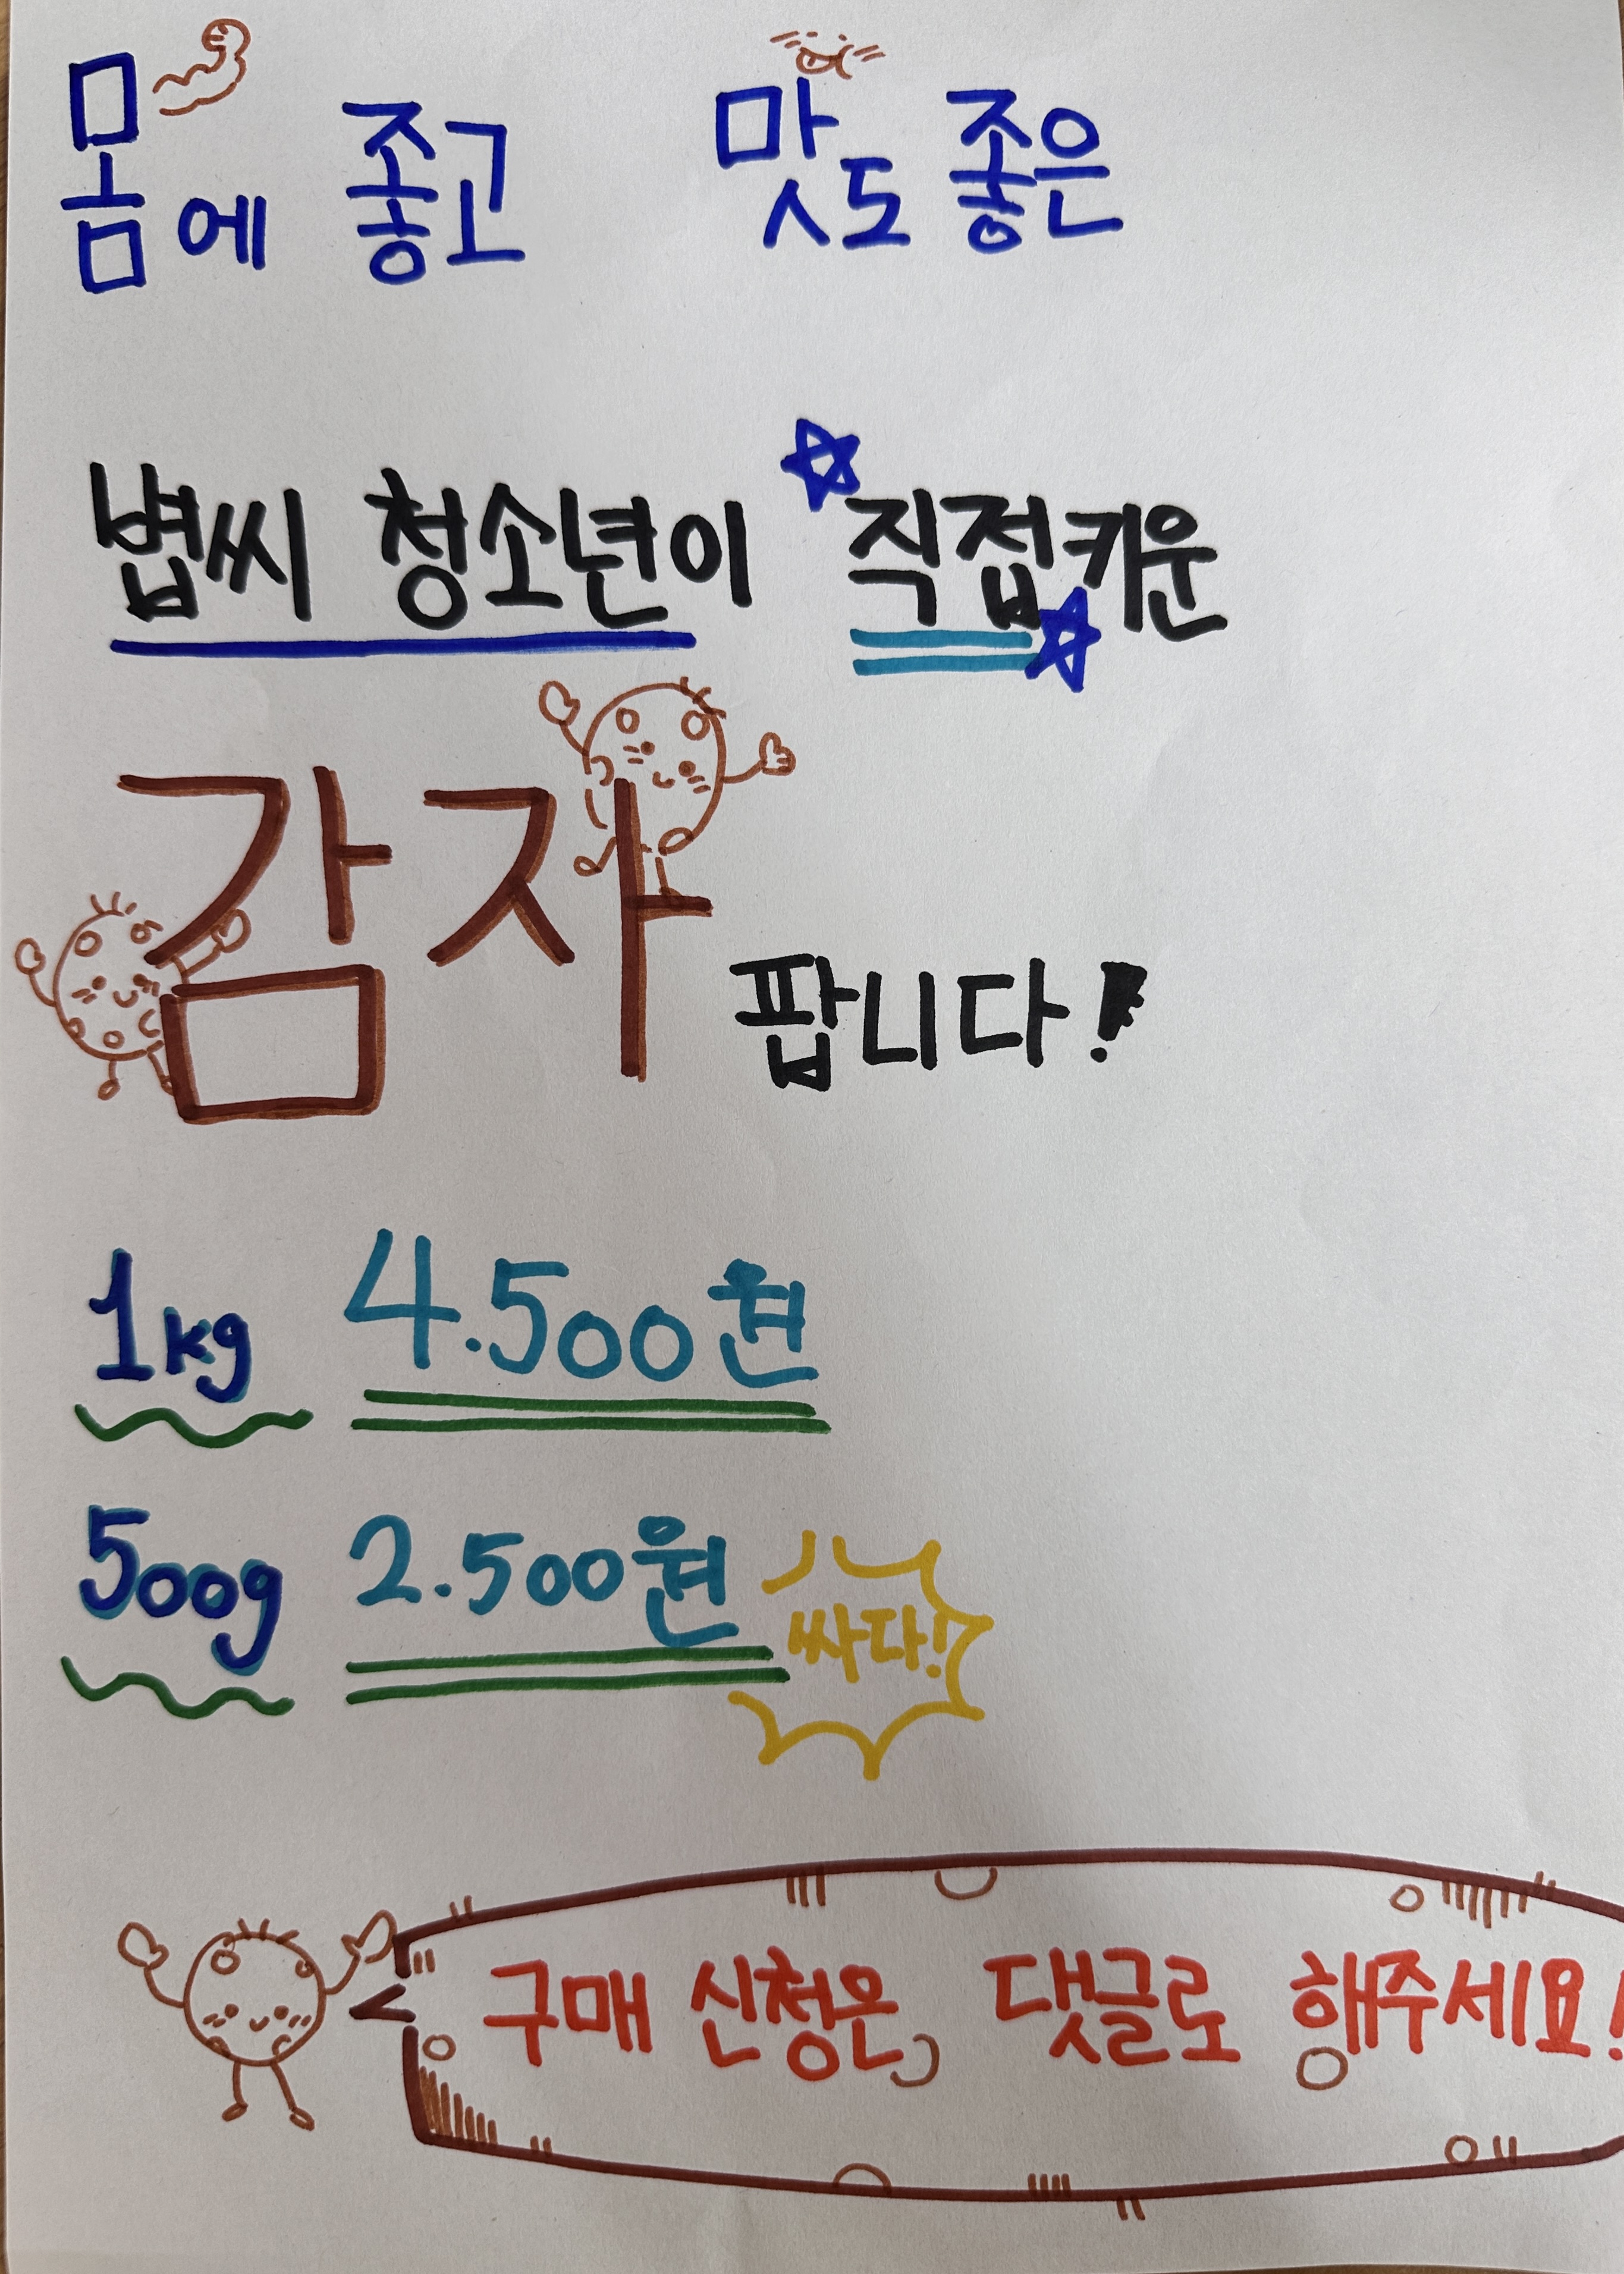 몸에 좋고 맛도 좋은
볍씨 청소년이 직접키운
감자 팝니다!
1kg 4.500원
500g 2.500원
싸다!!
구매 신청은 댓글로 해주세요!